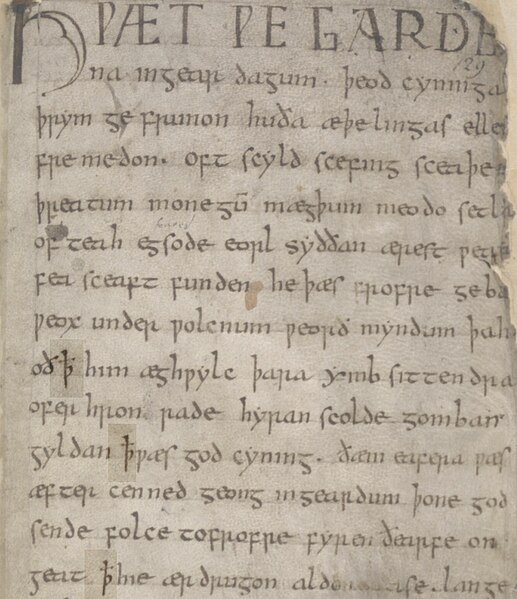 HǷÆT ǷE GARDE
129
na ingear dagum. þeod cyninga
þrym ge frunon huða æþelingas elle
fre medon. oft scyld scefing sceaþe
þreatum monegū mægþum meodo setla
of teah egsode eorl syððan ærest ƿear
fea sceaft funden he þæs frofre geba
ƿeox under ƿolcnum ƿeorð myndum þah
oð ꝥ him æghƿylc þara ymb sittendra
ofer hron rade hyran scolde gomban
gyldan ꝥ ƿæs god cyning. ðæm eafera ƿæs
æfter cenned geong ingeardum þone god
sende folce tofrofre fyren ðearfe on
geat ꝥ hie ær drugon aldor ase. lange